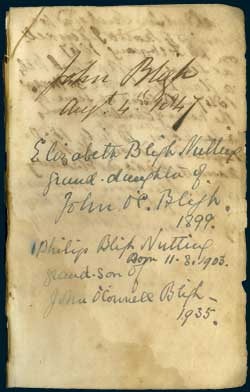 John Bligh
Augt. 4th 1847
Elizabeth Bligh Nutting
grand-daughter of
John O'C. Bligh.
1899.
Philip Bligh Nutting
Born 11-8-1903.
grand-son of
John O'Connell Bligh -
1935.